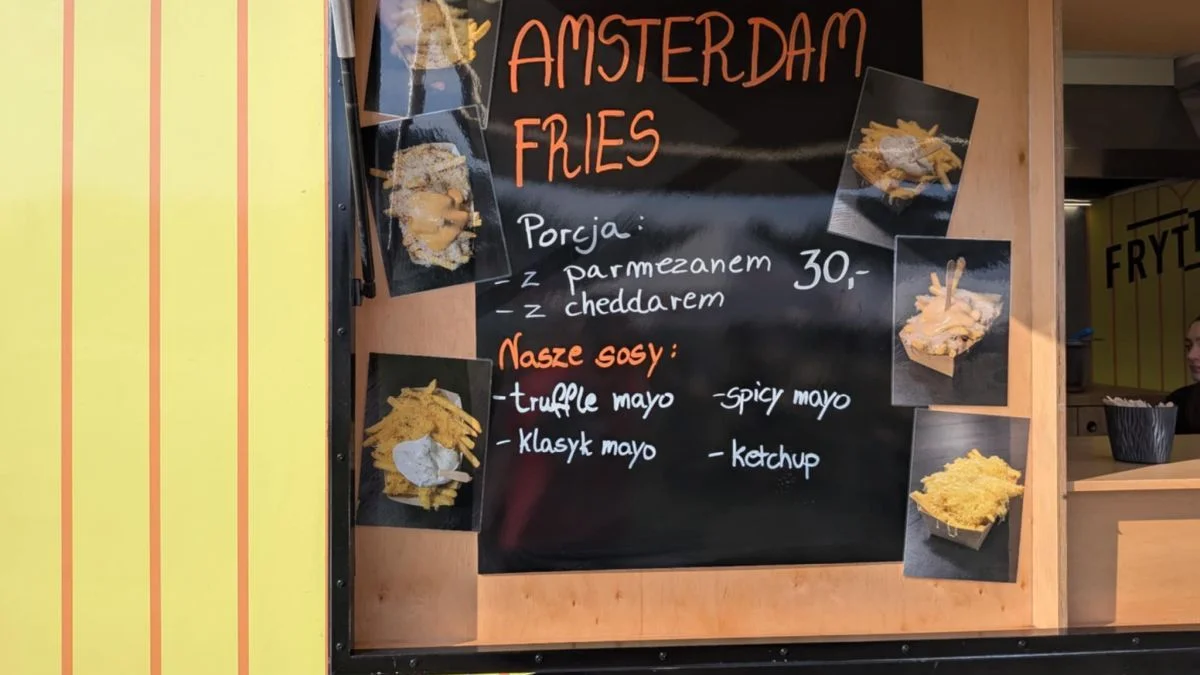 AMSTERDAM
FRIES
Porcja:
- z parmezanem 30,-
- z cheddarem
Nasze sosy:
- truffle mayo - spicy mayo
- klasyk mayo - ketchup